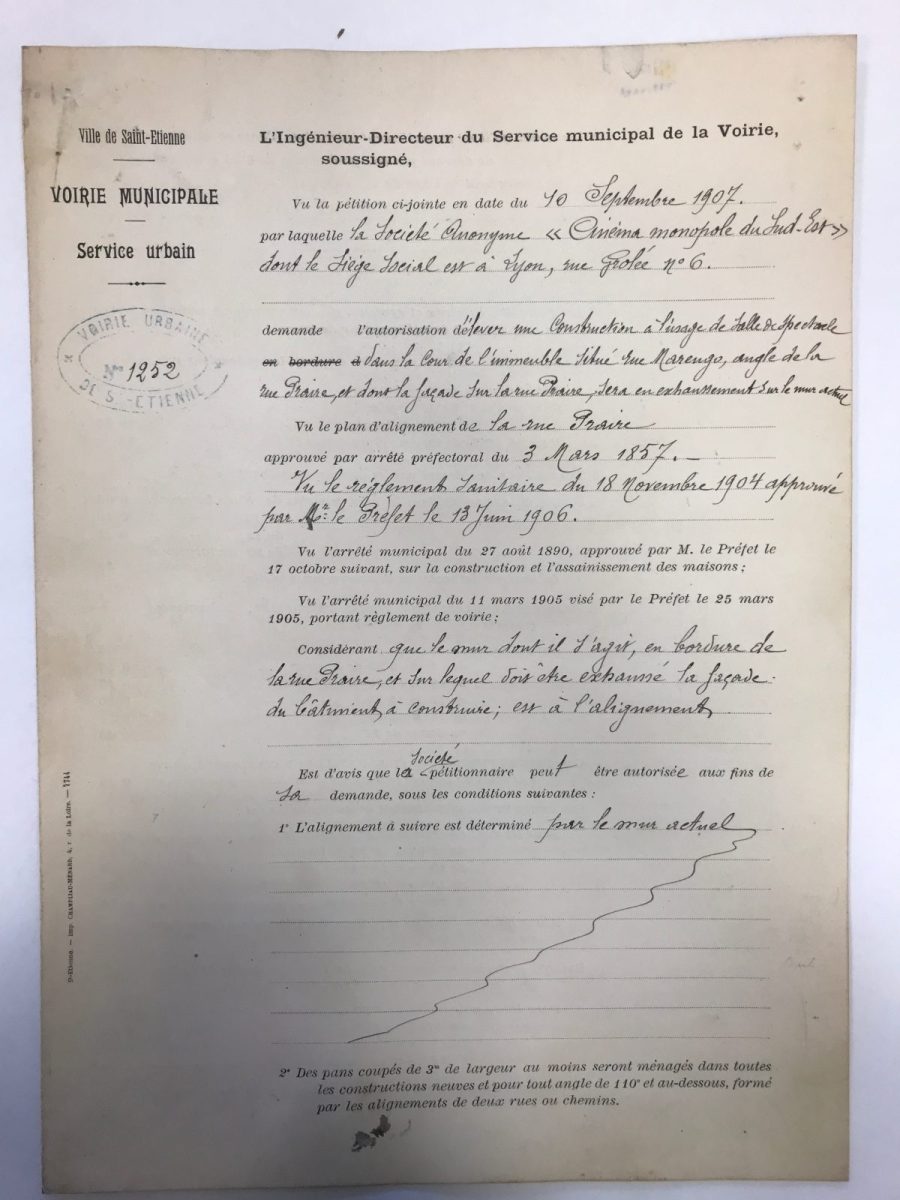 Ville de Saint-Etienne
VOIRIE MUNICIPALE
Service urbain
VOIRIE URBAINE
N° 1252
DE S^T-ETIENNE
L'Ingénieur-Directeur du Service municipal de la Voirie,
soussigné,
Vu la pétition ci-jointe en date du 10 Septembre 1907.
par laquelle la Société Anonyme « Cinéma monopole du Sud-Est »
dont le Siège Social est à Lyon, rue Grôlée n° 6.
demande l'autorisation d'élever une Construction à l'usage de Salle de Spectacle
en bordure d dans la Cour de l'immeuble situé rue Marengo, angle de la
rue Praire, et dont la façade sur la rue Praire, sera en exhaussement sur le mur actuel
Vu le plan d'alignement de la rue Praire
approuvé par arrêté préfectoral du 3 Mars 1857. -
Vu le règlement sanitaire du 18 Novembre 1904 approuvé
par Mr. le Préfet le 13 Juin 1906.
Vu l'arrêté municipal du 27 août 1890, approuvé par M. le Préfet le
17 octobre suivant, sur la construction et l'assainissement des maisons ;
Vu l'arrêté municipal du 11 mars 1905 visé par le Préfet le 25 mars
1905, portant règlement de voirie ;
Considérant que le mur dont il s'agit, en bordure de
la rue Praire, et sur lequel doit être exhaussé la façade
du bâtiment à construire ; est à l'alignement
Est d'avis que la société pétitionnaire peut être autorisée aux fins de
sa demande, sous les conditions suivantes :
1° L'alignement à suivre est déterminé par le mur actuel
2° Des pans coupés de 3m de largeur au moins seront ménagés dans toutes
les constructions neuves et pour tout angle de 110° et au-dessous, formé
par les alignements de deux rues ou chemins.
St-Etienne. — imp. CHAMPLIAU-MÉNARD, 4, r. de la Loire. — 7744